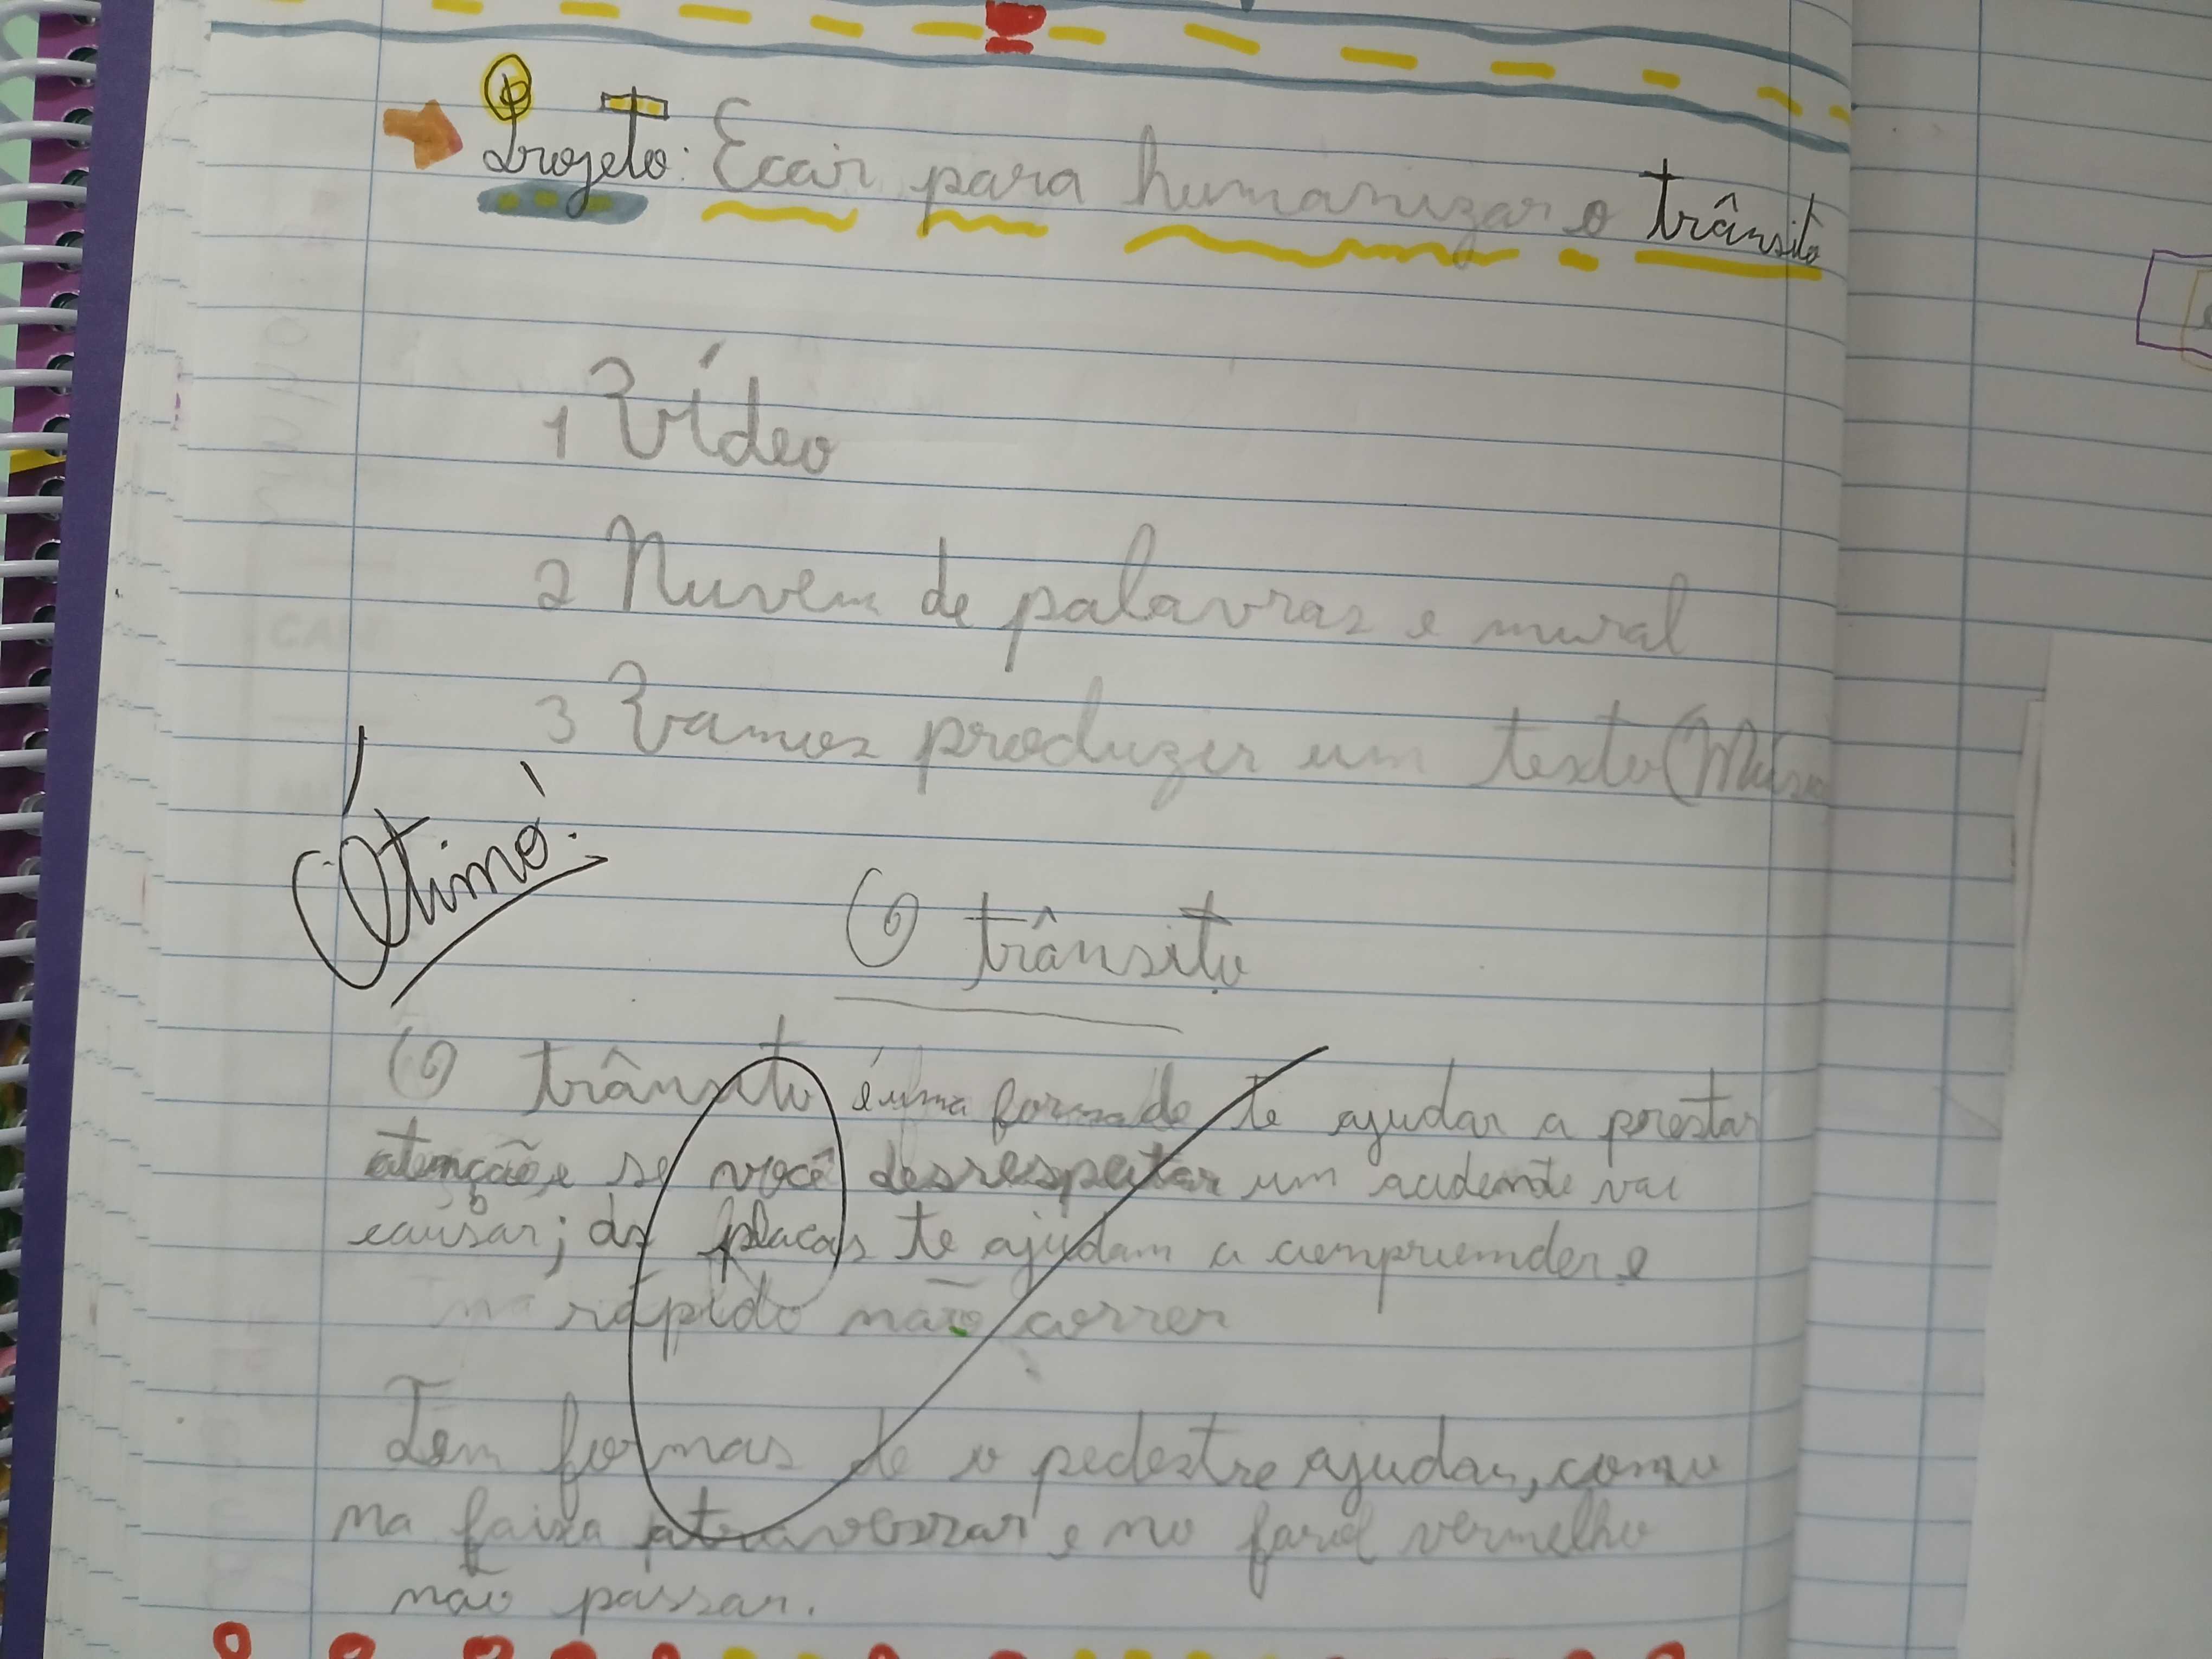 Projeto: Ecair para humanizar o trânsito
1 Vídeo
2 Nuvem de palavras e mural
3 Vamos produzir um texto (Músic
Ótimo!
O trânsito
O trânsito é uma forma de te ajudar a prestar
atenção e se você desrespeitar um acidente vai
causar; as placas te ajudam a compreender e
rápido não correr
Tem formas de o pedestre ajudar, como
na faixa atravessar e no farol vermelho
não passar.